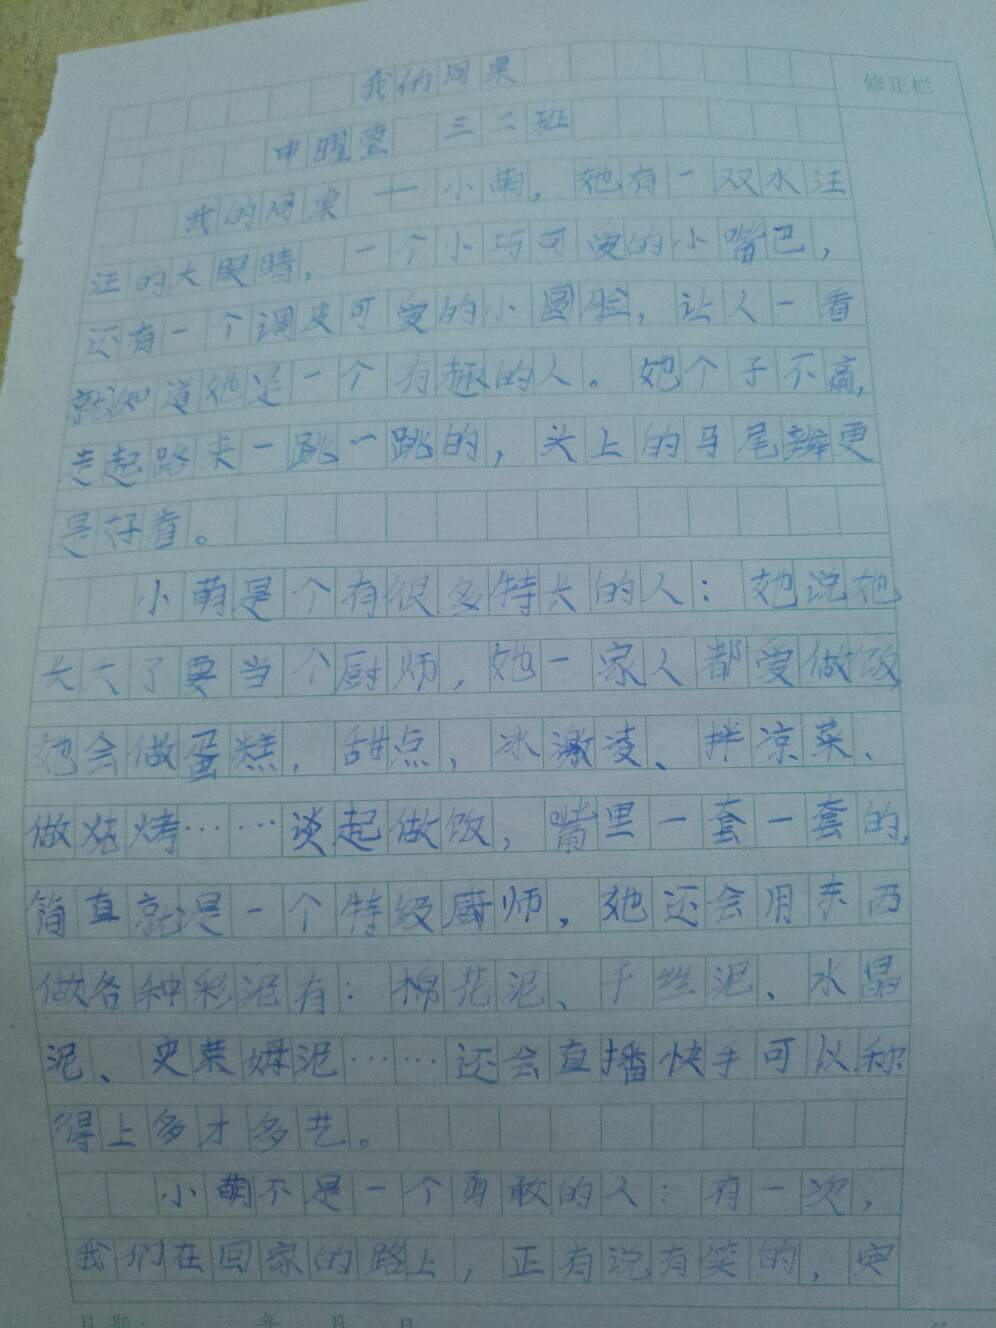 我的同桌
修正栏
申曜萱 三二班
我的同桌——小萌，她有一双水汪
汪的大眼睛，一个小巧可爱的小嘴巴，
还有一个调皮可爱的小圆脸，让人一看
就知道她是一个有趣的人。她个子不高，
走起路来一跳一跳的，头上的马尾辫更
是好看。
小萌是个有很多特长的人：她说她
长大了要当个厨师，她一家人都爱做饭
她会做蛋糕，甜点，冰激凌、拌凉菜、
做烧烤……谈起做饭，嘴里一套一套的，
简直就是一个特级厨师，她还会用东西
做各种彩泥有：棉花泥、千丝泥、水晶
泥、史莱姆泥……还会直播快手可以称
得上多才多艺。
小萌不是一个勇敢的人：有一次，
我们在回家的路上，正有说有笑的，突
日期： 年 月 日